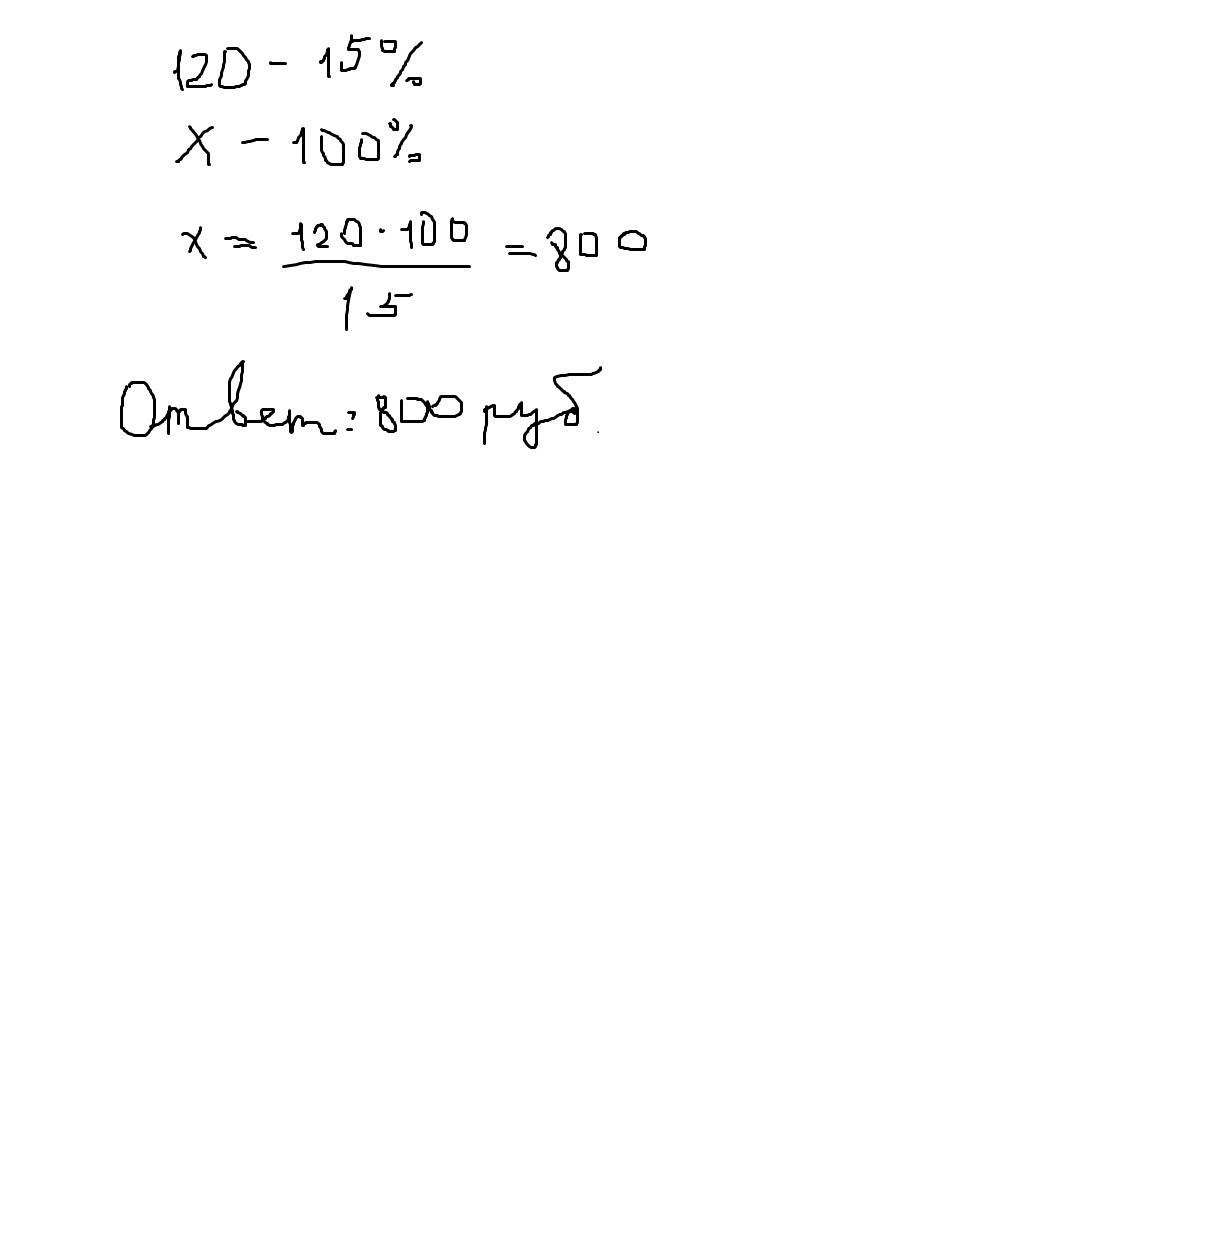 120 - 15%
x - 100%
x = 120·100 / 15 = 800
Ответ: 800 руб.